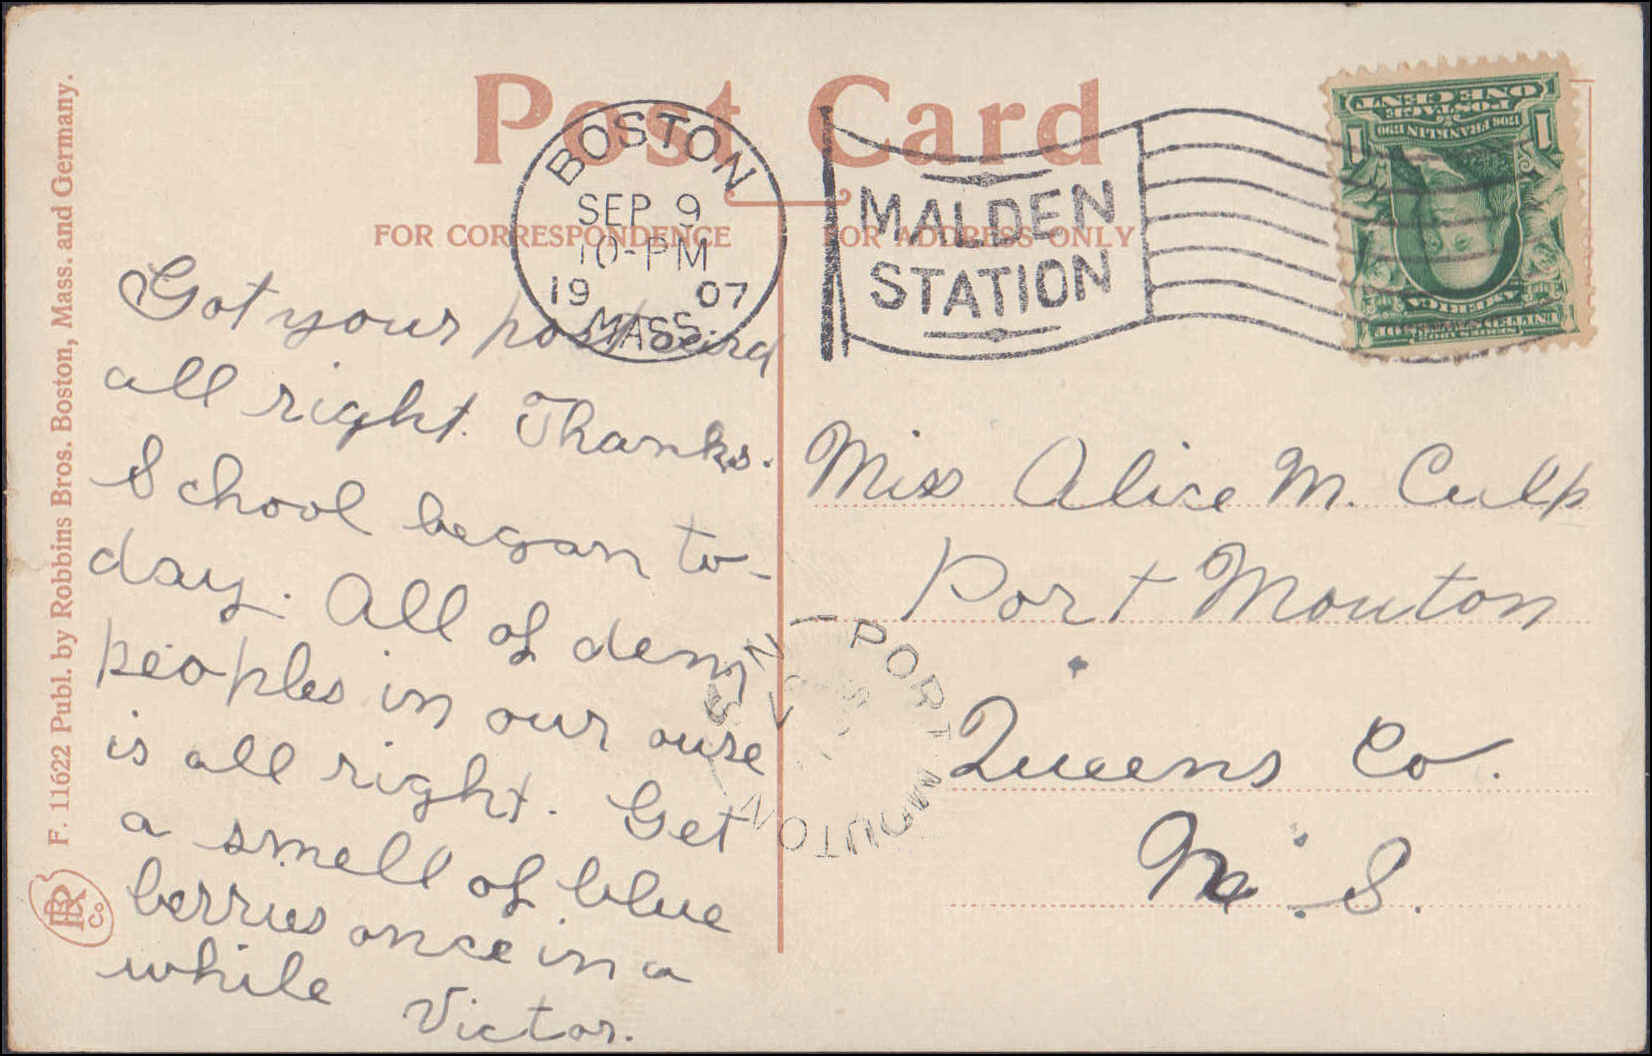 Post Card
FOR CORRESPONDENCE
FOR ADDRESS ONLY
BOSTON
SEP 9
10-PM
19 07
MASS.
MALDEN
STATION
POSTAGE
ONE CENT
1706 FRANKLIN 1790
1 1
UNITED STATES OF AMERICA
Got your postcard
all right. Thanks.
School began to-
day. All of dem
peoples in our ouse
is all right. Get
a smell of blue
berries once in a
while Victor.
Miss Alice M. Culp
Port Mouton
Queens Co.
N. S.
PORT MOUTON
F. 11622 Publ. by Robbins Bros. Boston, Mass. and Germany.
RR Co